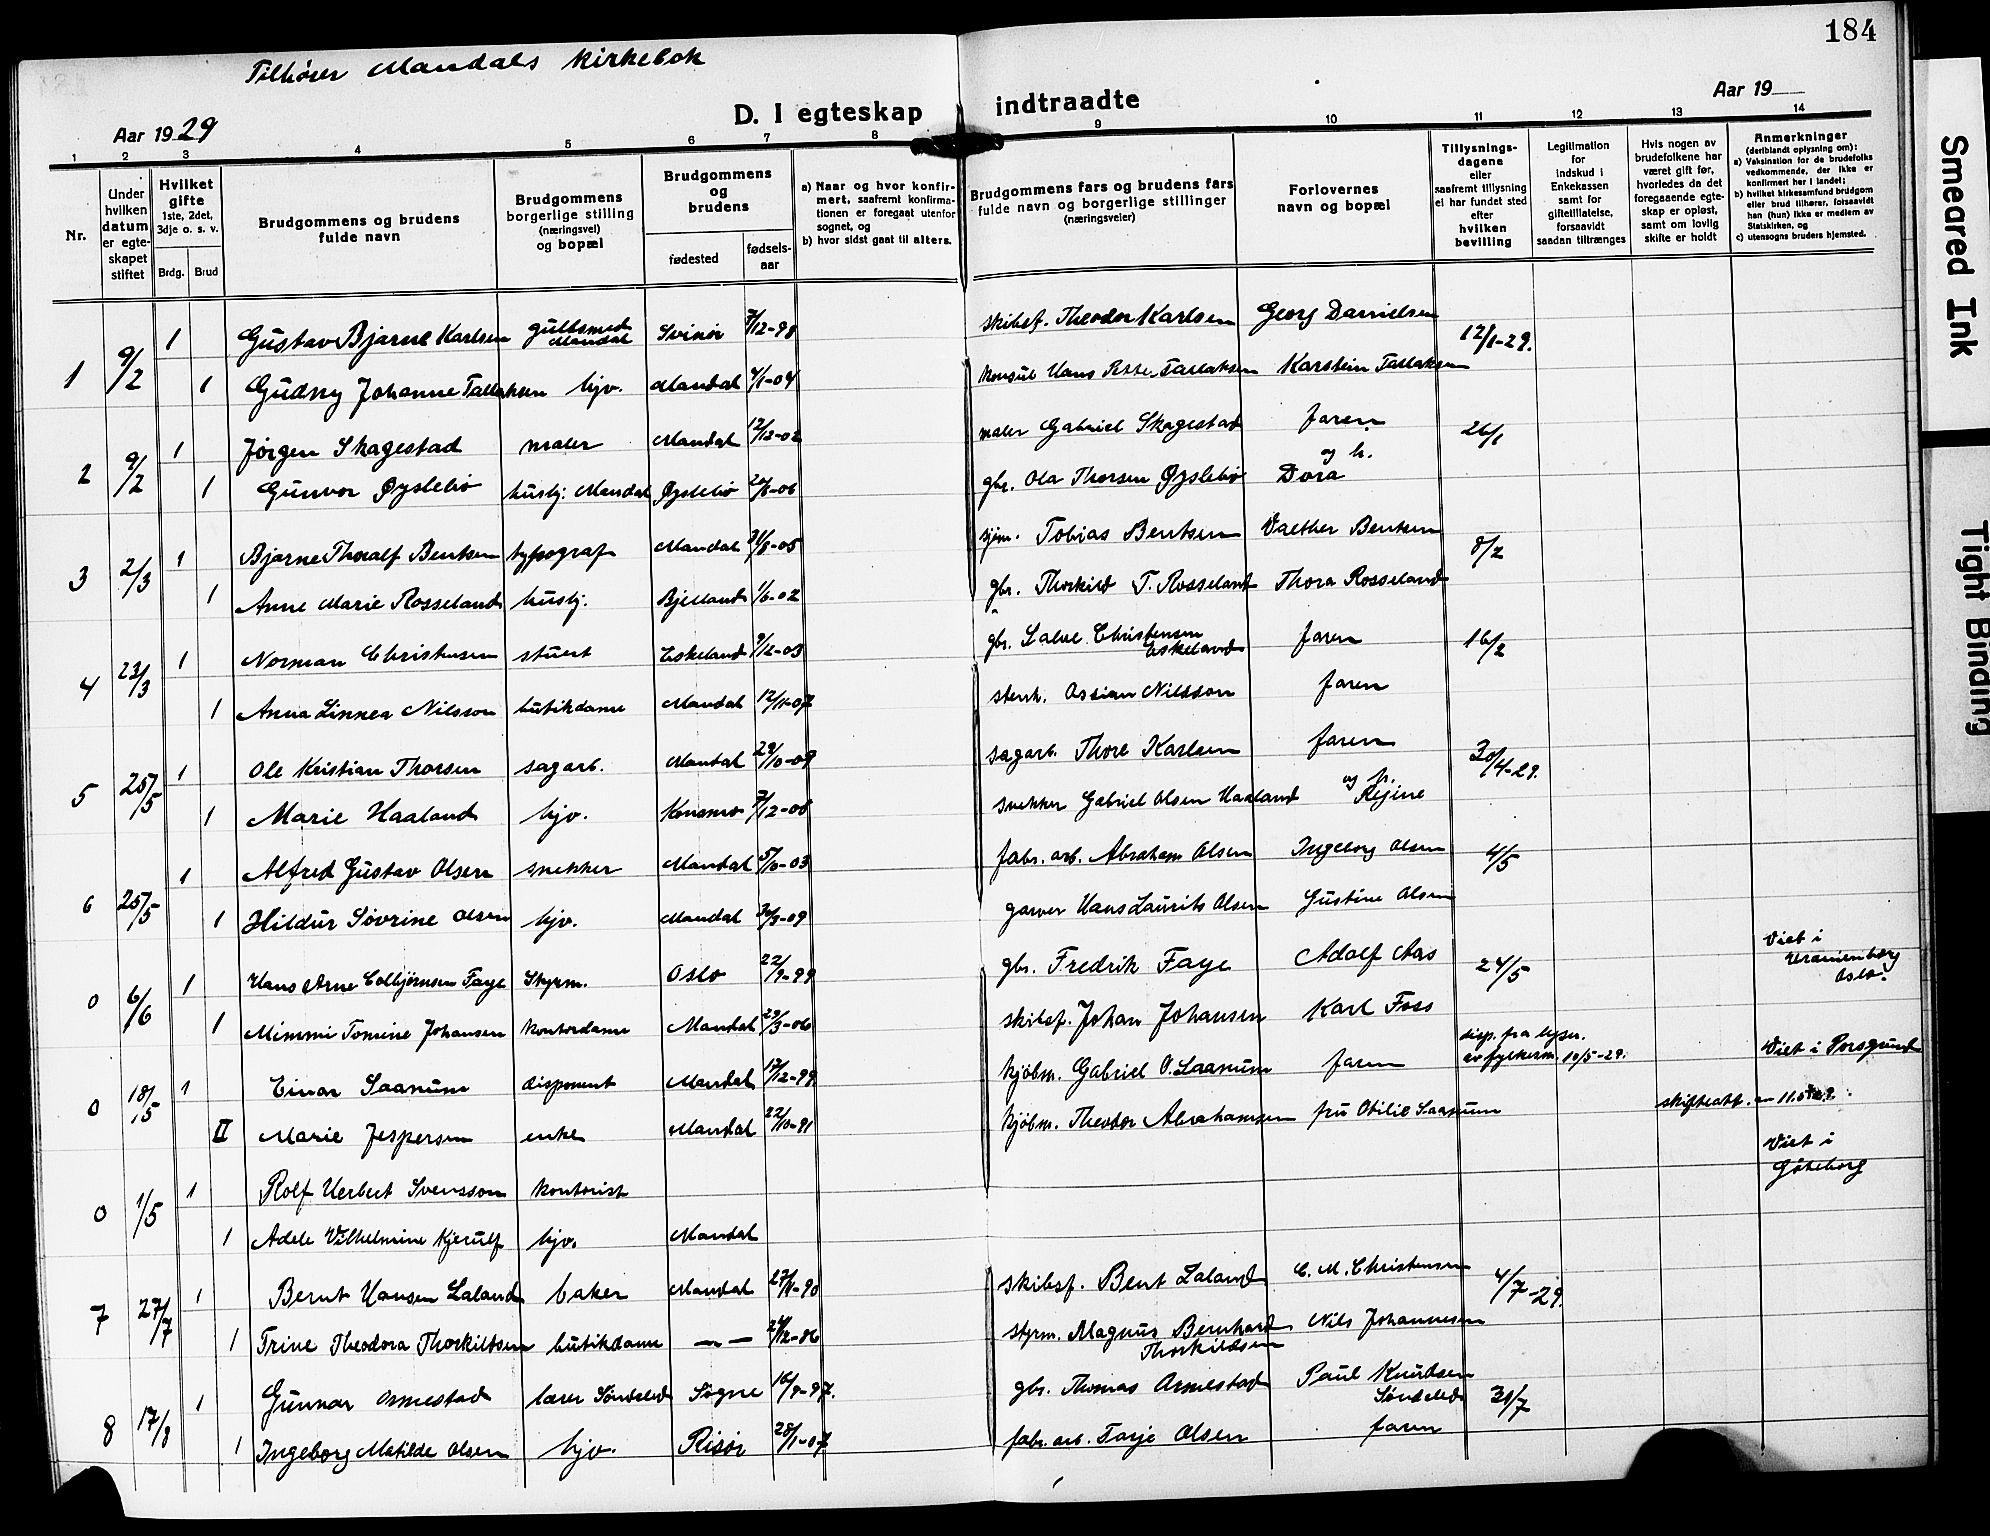 184
Tilhører Mandals Kirkebok
D. I egteskap indtraadte
Aar 1929
Aar 19
1 2 3 4 5 6 7 8 9 10 11 12 13 14
Nr.
Under hvilken datum er egteskapet stiftet
Hvilket gifte 1ste, 2det, 3dje o. s. v.
Brdg. Brud
Brudgommens og brudens fulde navn
Brudgommens borgerlige stilling (næringsvei) og bopæl
Brudgommens og brudens
fødested
fødselsaar
a) Naar og hvor konfirmert, saafremt konfirmationen er foregaat utenfor sognet, og
b) hvor sidst gaat til alters.
Brudgommens fars og brudens fars fulde navn og borgerlige stillinger (næringsveier)
Forlovernes navn og bopæl
Tillysningsdagene eller saafremt tillysning ei har fundet sted efter hvilken bevilling
Legitimation for indskud i Enkekassen samt for giftetilladelse, forsaavidt saadan tiltrænges
Hvis nogen av brudefolkene har været gift før, hvorledes da det foregaaende egteskap er opløst, samt om lovlig skifte er holdt
Anmerkninger (deriblandt oplysning om):
a) Vaksination for de brudefolks vedkommende, der ikke er konfirmert her i landet;
b) hvilket kirkesamfund brudgom eller brud tilhører, forsaavidt han (hun) ikke er medlem av Statskirken, og
c) utensogns bruders hjemsted.
1 9/2 1 Gustav Bjarne Karlsen gullsmed Mandal Svinør 7/12-98 skibsf. Theodor Karlsen Georg Danielsen 12/1-29.
1 Gudny Johanne Tallaksen hjv. Mandal 4/1-04 konsul Hans Petter Tallaksen Karstein Tallaksen
2 9/2 1 Jørgen Skagestad maler Mandal 12/12-02 maler Gabriel Skagestad faren 26/1
1 Gunvor Øyslebø husbj. Mandal Øyslebø 20/6-06 gbr. Ola Thorsen Øyslebø og h. Dora
3 2/3 1 Bjarne Thoralf Bentsen typograf Mandal 31/8-05 sjøm. Tobias Bentsen Valther Bentsen 8/2
1 Anne Marie Rosseland husbj. Bjelland 1/6-02 gbr. Thorkild T. Rosseland Thora Rosseland
4 23/3 1 Norman Christensen stuert Eskeland 9/12-03 gbr. Salve Christensen Eskeland faren 16/2
1 Anna Linnea Nilsson butikdame Mandal 12/11-07 stenh. Ossian Nilsson faren
5 25/5 1 Ole Kristian Thorsen sagarb. Mandal 29/10-09 sagarb. Thore Karlsen faren 30/4-29.
1 Marie Haaland hjv. Konsmo 7/12-08 snekker Gabriel Olsen Haaland og fr. Regine
6 25/5 1 Alfred Gustav Olsen snekker Mandal 5/10-03 fabr. arb. Abraham Olsen Ingeborg Olsen 4/5
1 Hildur Søvrine Olsen hjv. Mandal 30/3-09 garver Hans Laurits Olsen Gustine Olsen
0 6/6 1 Hans Arne Colbjørnsen Faye Styrm. Oslo 22/9-99 gbr. Fredrik Faye Adolf Aas 24/5 Viet i Uranienborg Oslo.
1 Mimmi Tomine Johansen kontordame Mandal 29/3-06 skibsf. Johan Johansen Karl Foss
0 18/5 1 Einar Saanum disponent Mandal 17/12-99 kjøbm. Gabriel O. Saanum faren disp. fra lysn. av fylkesm. 10/5-29. Viet i Porsgrund
II Marie Jespersen enke Mandal 22/10-91 kjøbm. Theodor Abrahamsen fru Otilie Saanum skifteatt.
0 1/5 1 Rolf Herbert Svensson kontorist Viet i Göteborg
1 Adele Vilhelmine Kjerulf hjv. Mandal
7 27/7 1 Bernt Hansen Laland baker Mandal 27/8-90 skibsf. Bent Laland C. M. Christensen 4/7-29.
1 Trine Theodora Thorkildsen butikdame — — 24/12-86 styrm. Magnus Bernhard Thorkildsen Nils Johannesen
8 17/8 1 Gunnar Omestad lærer Søndeled Søgne 16/9-97. gbr. Thomas Omestad Paul Knudsen Søndeled 31/7
1 Ingeborg Matilde Olsen hjv. Risør 28/1-07 fabr. arb. Tarje Olsen faren
Smeared Ink
Tight Binding